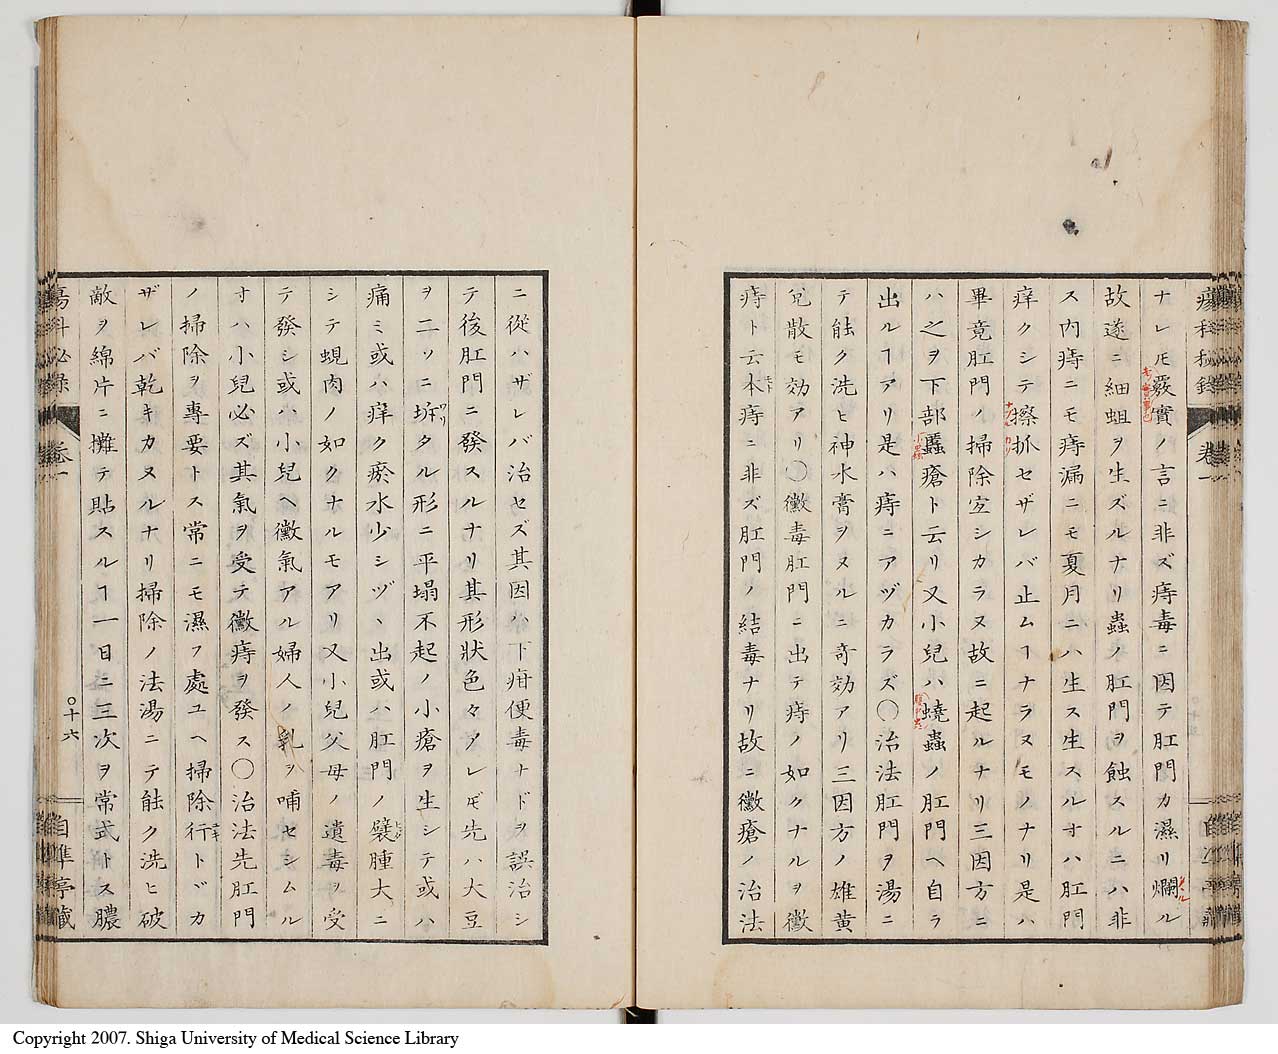 瘍科秘錄 卷一
ナレ𪜈覈實ノ言ニ非ズ痔毒ニ因テ肛門カ濕リ爛ル
故遂ニ細蛆ヲ生ズルナリ蟲ノ肛門ヲ蝕スルニハ非
ス内痔ニモ痔漏ニモ夏月ニハ生ス生スルオハ肛門
痒クシテ擦抓セザレバ止ムヿナラヌモノナリ是ハ
畢竟肛門ノ掃除宜シカラヌ故ニ起ルナリ三因方ニ
ハ之ヲ下部䘌瘡ト云リ又小兒ハ蟯蟲ノ肛門ヘ自ラ
出ルヿアリ是ハ痔ニアヅカラズ〇治法肛門ヲ湯ニ
テ能ク洗ヒ神水膏ヲヌルニ奇効アリ三因方ノ雄黄
兌散モ効アリ〇黴毒肛門ニ出テ痔ノ如クナルヲ黴
痔ト云本痔ニ非ズ肛門ノ結毒ナリ故ニ黴瘡ノ治法
ニ從ハザレバ治セズ其因ハ下疳便毒ナドヲ誤治シ
テ後肛門ニ發スルナリ其形狀色々アレ𪜈先ハ大豆
ヲ二ソニ坼タル形ニ平塌不起ノ小瘡ヲ生シテ或ハ
痛ミ或ハ痒ク瘀水少シヅヽ出或ハ肛門ノ襞腫大ニ
シテ蜆肉ノ如クナルモアリ又小兒父母ノ遺毒ヲ受
テ發シ或ハ小兒ヘ黴氣アル婦人ノ乳ヲ哺セシムル
オハ小兒必ズ其氣ヲ受テ黴痔ヲ發ス〇治法先肛門
ノ掃除ヲ專要トス常ニモ濕フ處ユヘ掃除行トヾカ
ザレバ乾キカヌルナリ掃除ノ法湯ニテ能ク洗ヒ破
敵ヲ綿片ニ攤テ貼スルヿ一日ニ三次ヲ常式トス膿
瘍科秘錄 卷一 〇十六 自準亭藏
Copyright 2007. Shiga University of Medical Science Library